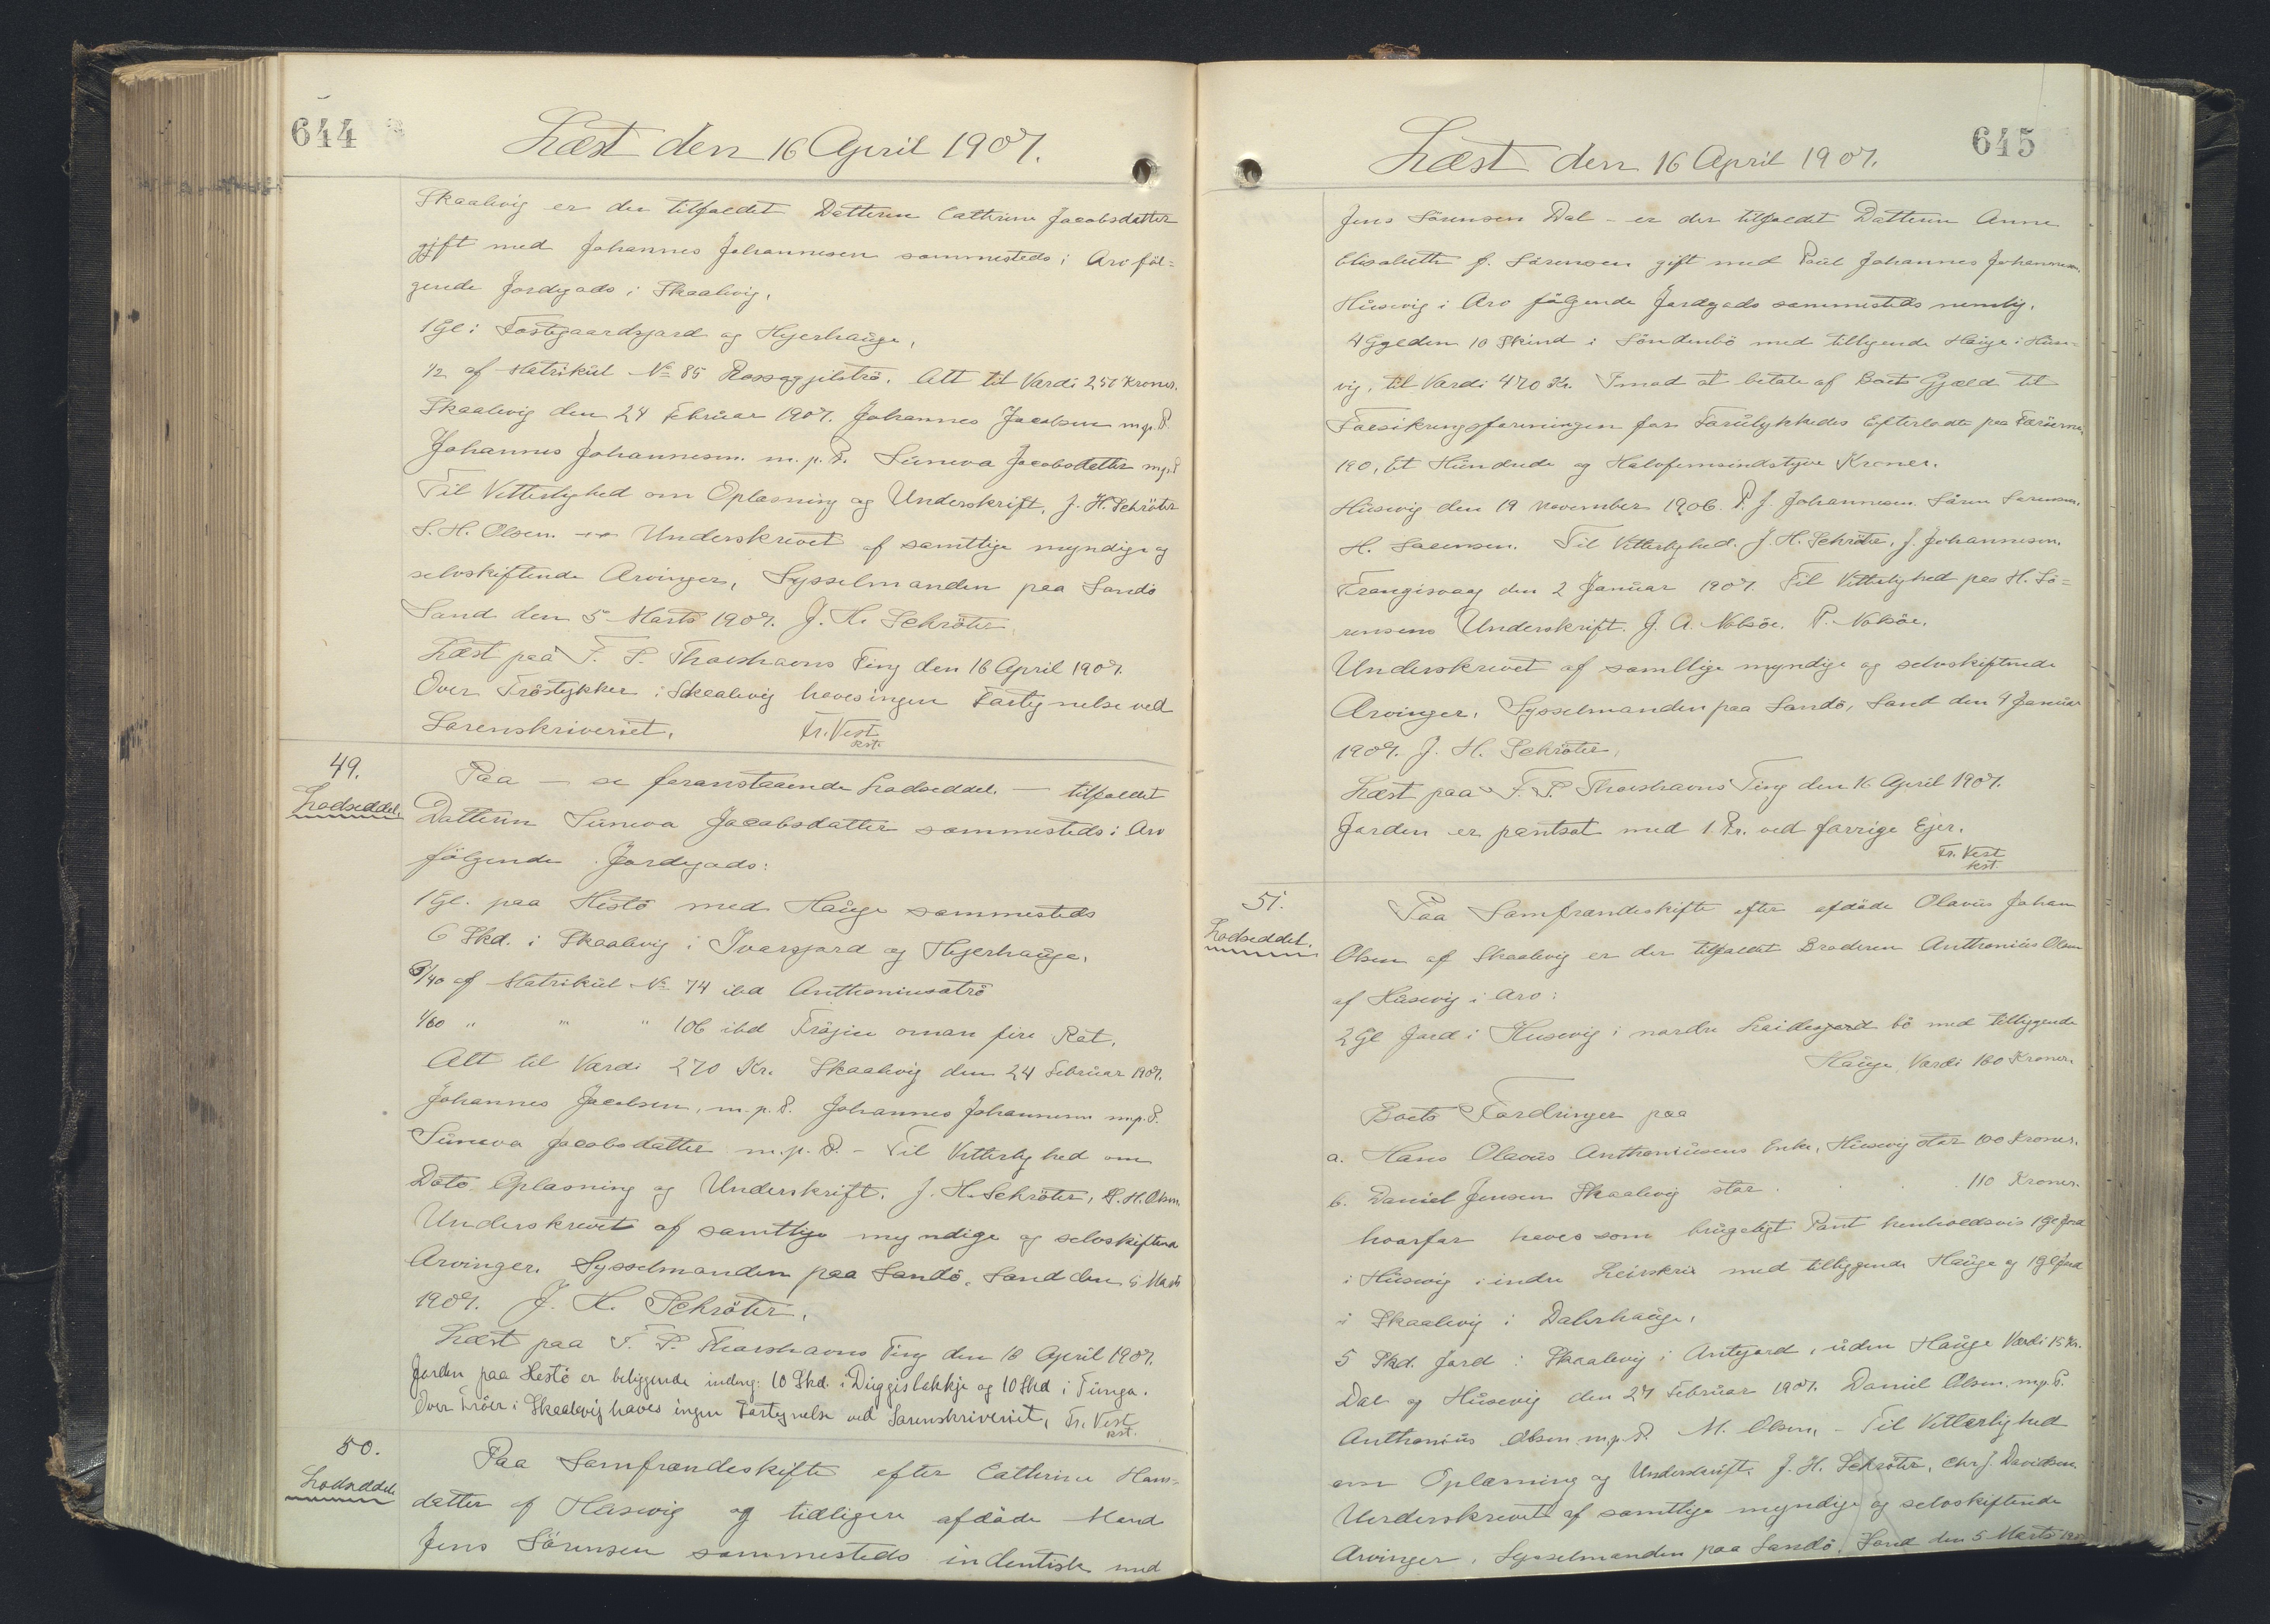 644
Læst den 16 April 1907.
Skaalevig er der tilfaldet Datteren Cathrine Jacobsdatter
gift med Johannes Johannesen sammesteds i Arv føl=
gende Jordegods i Skaalevig.
1 Gl. i Tostegaardsjard og Hyerhauge,
1/2 af Matrikul No 85 Rossagjilströ. Alt til Værdi 250 Kroner.
Skaalevig den 24 Februar 1907. Johannes Jacobsen m.p.P.
Johannes Johannesen. m.p.P. Sunneva Jacobsdatter m.p.P
Til Vitterlighed om Oplæsning og Underskrift, J. H. Schröter
S. H. Olsen. Underskrevet af samtlige myndige og
selvskiftende Arvinger, Sysselmanden paa Sandö
Sand den 5 Marts 1907. J. H. Schröter.
Læst paa F. P. Thorshavns Ting den 16 April 1907.
Over Tröstykker i Skaalevig haves ingen Fortegnelse ved
Sorenskriveriet. Fr. Vest
kst.
49.
Lodseddel.
Paa – se foranstaaende Lodseddel. – tilfaldet
Datteren Sunneva Jacobsdatter sammesteds i Arv
følgende Jordegods:
1 Gl. paa Hestö med Hauge sammesteds
6 Skd. i Skaalevig i Ivarsjard og Hyerhauge.
9/40 af Matrikul No 74 ibd Anthoniusatrö
1/60 " " " 106 ibd Trögin oman fire Rát.
Alt til Værdi 270 Kr. Skaalevig den 24 Februar 1907.
Johannes Jacobsen, m.p.P. Johannes Johannesen m.p.P.
Sunneva Jacobsdatter m.p.P. – Til Vitterlighed om
Dato Oplæsning og Underskrift. J. H. Schröter, S. H. Olsen.
Underskrevet af samtlige myndige og selvskiftende
Arvinger. Sysselmanden paa Sandö. Sand den 5 Marts
1907. J. H. Schröter.
Læst paa F. P. Thorshavns Ting den 16 April 1907.
Jorden paa Hestö er beliggende indvg: 10 Skd. i Duggislakkje og 10 Skd i Tunga.
Over Tröer i Skaalevig haves ingen Fortegnelse ved Sorenskriveriet, Fr. Vest
kst.
50.
Lodseddel
Paa Samfrændeskifte efter Cathrine Hans=
datter af Husevig og tidligere afdøde Mand
Jens Sörensen sammesteds indentisk med
645
Læst den 16 April 1907.
Jens Sörensen Dal – er der tilfaldet Datteren Anne
Elisabeth f. Sörensen gift med Poul Johannes Johannesen,
Husevig i Arv følgende Jordegods sammesteds nemlig,
4 Gylden 10 Skind i Söndenbö med tilligende Hauge i Huse-
vig, til Værdi 470 Kr. Imod at betale af Boets Gjæld til
Forsikringsforeningen for Forulykkedes Efterladte paa Færøerne,
190, Et Hundrede og Halvfemsindstyve Kroner.
Husevig den 19 November 1906. P. J. Johannesen. Sörin Sorensen.
H. Sorensen. Til Vitterlighed. J. H. Schröter, J. Johannesen.
Trangisvaag den 2 Januar 1907. Til Vitterlighed paa H. Sö=
rensens Underskrift. J. A. Nolsöe. P. Nolsöe.
Underskrevet af samtlige myndige og selvskiftende
Arvinger. Sysselmanden paa Sandö, Sand den 4 Januar
1907. J. H. Schröter.
Læst paa F. P. Thorshavns Ting den 16 April 1907.
Jorden er pantsat med 1. Pr. ved forrige Ejer.
Fr. Vest
kst.
51.
Lodseddel.
Paa Samfrændeskifte efter afdøde Olavus Johan
Olsen af Skaalevig er der tilfaldet Broderen Anthonius Olsen
af Husevig i Arv:
2 Gl Jord i Husevig i nordre Leidesjord bö med tilliggende
Hauge, Værdi 160 Kroner.
Boets Fordringer paa
a. Hans Olavus Anthoniusens Enke, Husevig stor 100 Kroner.
b. Daniel Jensen Skaalevig stor . . . 110 Kroner.
hvorfor haves som brugeligt Pant henholdsvis 1 Gl Jord
i Husevig i indre Leirskrie med tilliggende Hauge og 1 Gl Jord
i Skaalevig i Dalerhauge.
5 Skd. Jord i Skaalevig i Antejord, uden Hauge Værdi 15 Kr.
Dal og Husevig den 27 Februar 1907. Daniel Olsen. m.p.P.
Anthonius Olsen m.p.P. M. Olsen. – Til Vitterlighed
om Oplæsning og Underskrift. J. H. Schröter, Chr J. Davidsen.
Underskrevet af samtlige myndige og selvskiftende
Arvinger, Sysselmanden paa Sandö. Sand den 5 Marts 190